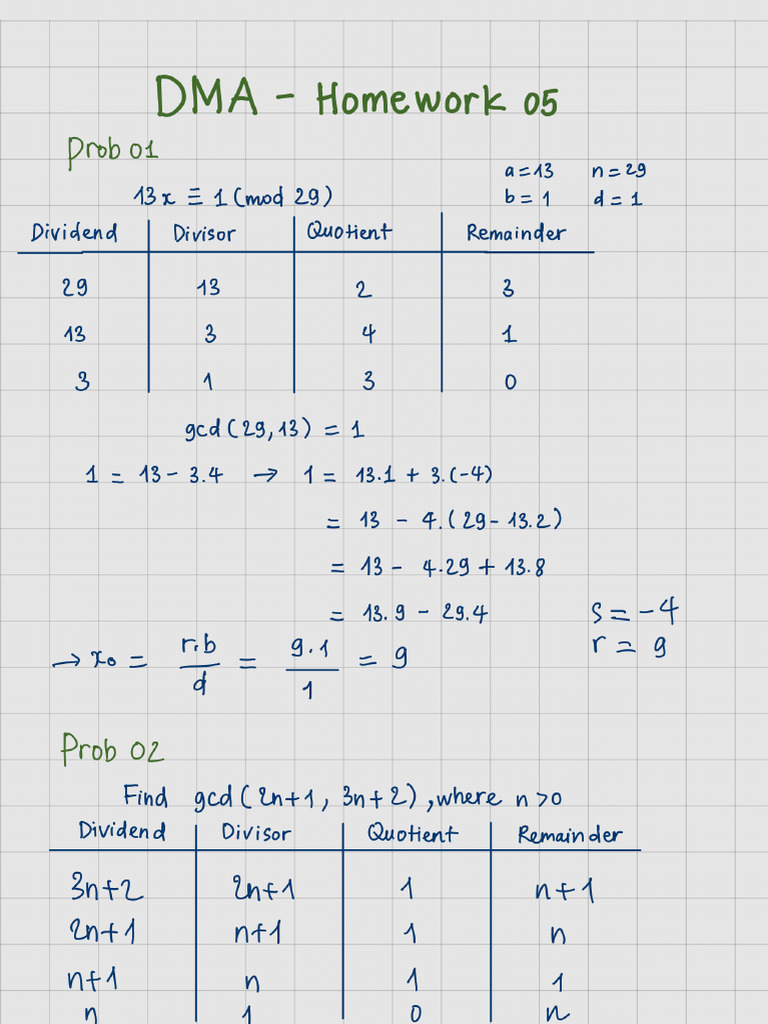 DMA - Homework 05
Prob 01
a = 13 n = 29
13x ≡ 1 (mod 29) b = 1 d = 1
Dividend Divisor Quotient Remainder
29 13 2 3
13 3 4 1
3 1 3 0
gcd (29, 13) = 1
1 = 13 - 3.4 → 1 = 13.1 + 3.(-4)
= 13 - 4.(29 - 13.2)
= 13 - 4.29 + 13.8
= 13.9 - 29.4 s = -4
r = 9
→ x₀ = r.b / d = 9.1 / 1 = 9
Prob 02
Find gcd (2n+1, 3n+2), where n > 0
Dividend Divisor Quotient Remainder
3n+2 2n+1 1 n+1
2n+1 n+1 1 n
n+1 n 1 1
n 1 0 n